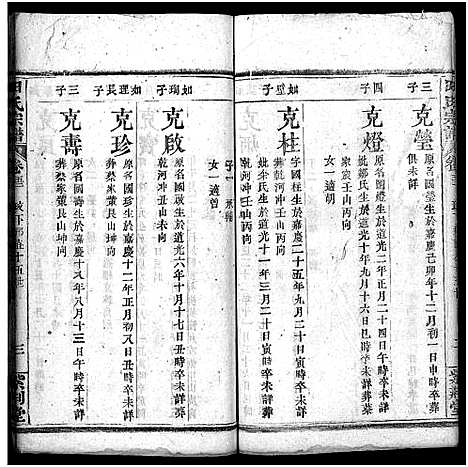 三子
克瑩
原名國瑩生於嘉慶己卯年十二月初一日申時卒葬
俱未詳
四子
克燈
原名國燈生於道光二年正月二十四日午時卒葬
家嵗壬山丙向
妣鄒氏生於道光十年九月十六日巳時卒未詳葬蔡
女一適胡
如璧子
克柱
字國柱生於嘉慶二十五年九月二十日寅時卒未詳
葬乾河冲壬山丙向
妣余氏生於道光十一年三月二十日寅時卒未詳葬
乾河冲壬山丙向
子一
女一適曾
如瑞子
克啟
原名國啟生於道光六年十月十七日丑時卒未詳葬
乾河冲丑山未向
如珵長子
克珍
原名國珍生於嘉慶十二年正月初八日丑時卒未詳
葬蔡家嵗艮山坤向
三子
克壽
原名國壽生於嘉慶十八年八月十三日午時卒未詳
葬蔡家嵗艮山坤向
氏宗譜
三
紫荊堂